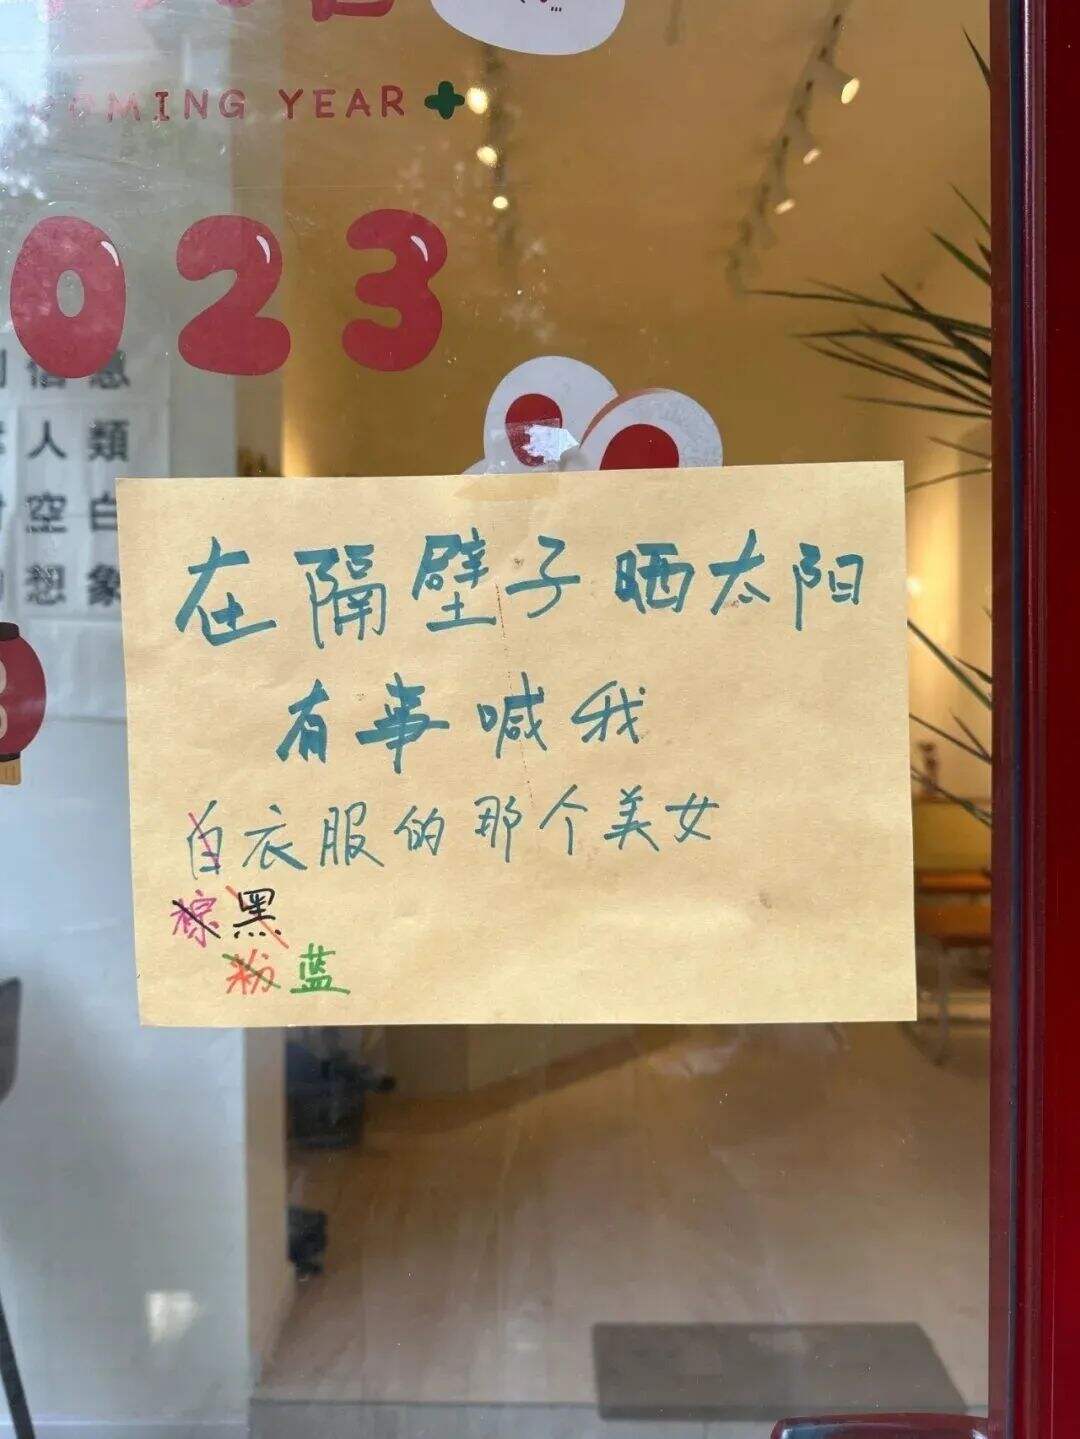 COMING YEAR
023
信息
人類
空白
想象
在隔壁子晒太阳
有事喊我
白衣服的那个美女
棕黑
粉蓝